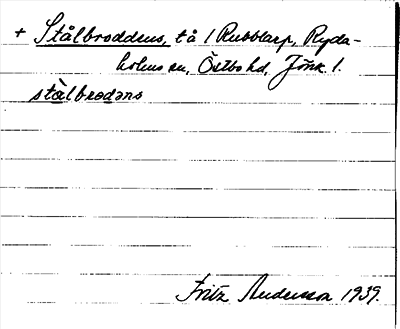 + Stålbroddens, tå i Rubbtarp, Ryda-
holms sn, Östbo hd, Jönk. l.
stålbrodəns
Fritz Andersson 1939.